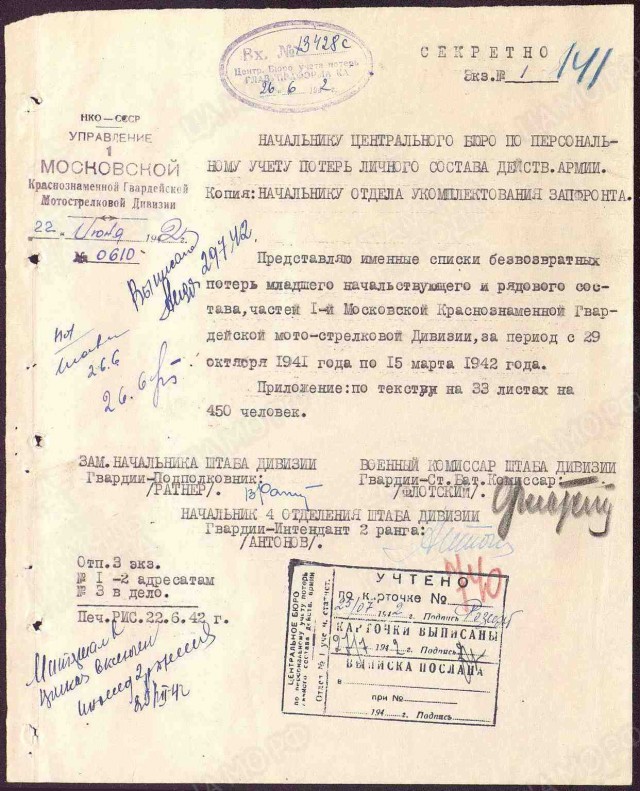 Вх. № 13428с
Центр. Бюро учета потерь
26 6 1942
СЕКРЕТНО
Экз.№ 1
141
НКО—СССР
УПРАВЛЕНИЕ
1
МОСКОВСКОЙ
Краснознаменной Гвардейской
Мотострелковой Дивизии
22 Июня 1942г.
№ 0610
НАЧАЛЬНИКУ ЦЕНТРАЛЬНОГО БЮРО ПО ПЕРСОНАЛЬ-
НОМУ УЧЕТУ ПОТЕРЬ ЛИЧНОГО СОСТАВА ДЕЙСТВ.АРМИИ.
Копия:НАЧАЛЬНИКУ ОТДЕЛА УКОМПЛЕКТОВАНИЯ ЗАПФРОНТА.
Выписано
29.7.42.
Представляю именные списки безвозвратных
потерь младшего начальствующего и рядового сос-
тава,частей I-й Московской Краснознаменной Гвар-
дейской мото-стрелковой Дивизии,за период с 29
октября 1941 года по 15 марта 1942 года.
Приложение:по тексту на 33 листах на
450 человек.
26.6
26.6
ЗАМ.НАЧАЛЬНИКА ШТАБА ДИВИЗИИ
Гвардии-Подполковник:
/РАТНЕР/.
ВОЕННЫЙ КОМИССАР ШТАБА ДИВИЗИИ
Гвардии-Ст.Бат.Комиссар:
/ФЛОТСКИЙ/.
НАЧАЛЬНИК 4 ОТДЕЛЕНИЯ ШТАБА ДИВИЗИИ
Гвардии-Интендант 2 ранга:
/АНТОНОВ/.
Отп.3 экз.
№ I-2 адресатам
№ 3 в дело.
Печ.РИС.22.6.42 г.
ЦЕНТРАЛЬНОЕ БЮРО
по персональному учету потерь
личного состава действ. армии
Отдел № 1 уче н. статист.
УЧТЕНО
по карточке №
23/07 1942 г. Подпись
КАРТОЧКИ ВЫПИСАНЫ
27/7 1942 г. Подпись
ВЫПИСКА ПОСЛАНА
в
при №
194 г. Подпись